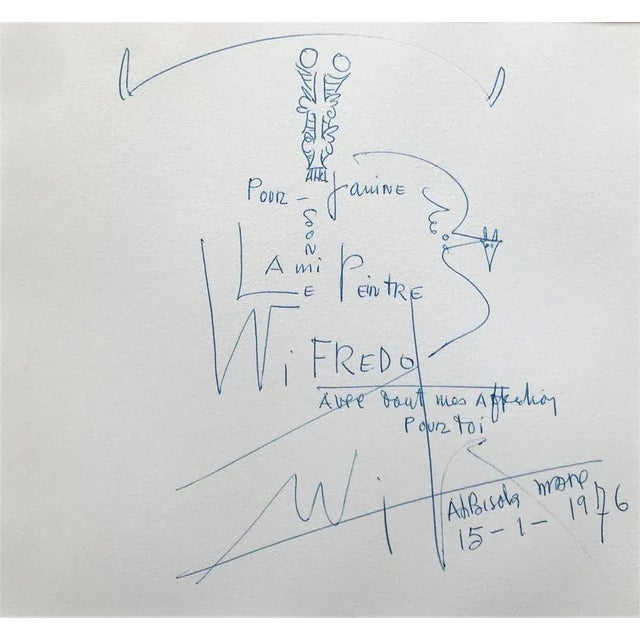 Pour - Janine
Leon
L'Ami Le Peintre
WiFREDO
Avec tout mes Affection
Pour toi
Wif
Albisola mare
15-1-1976